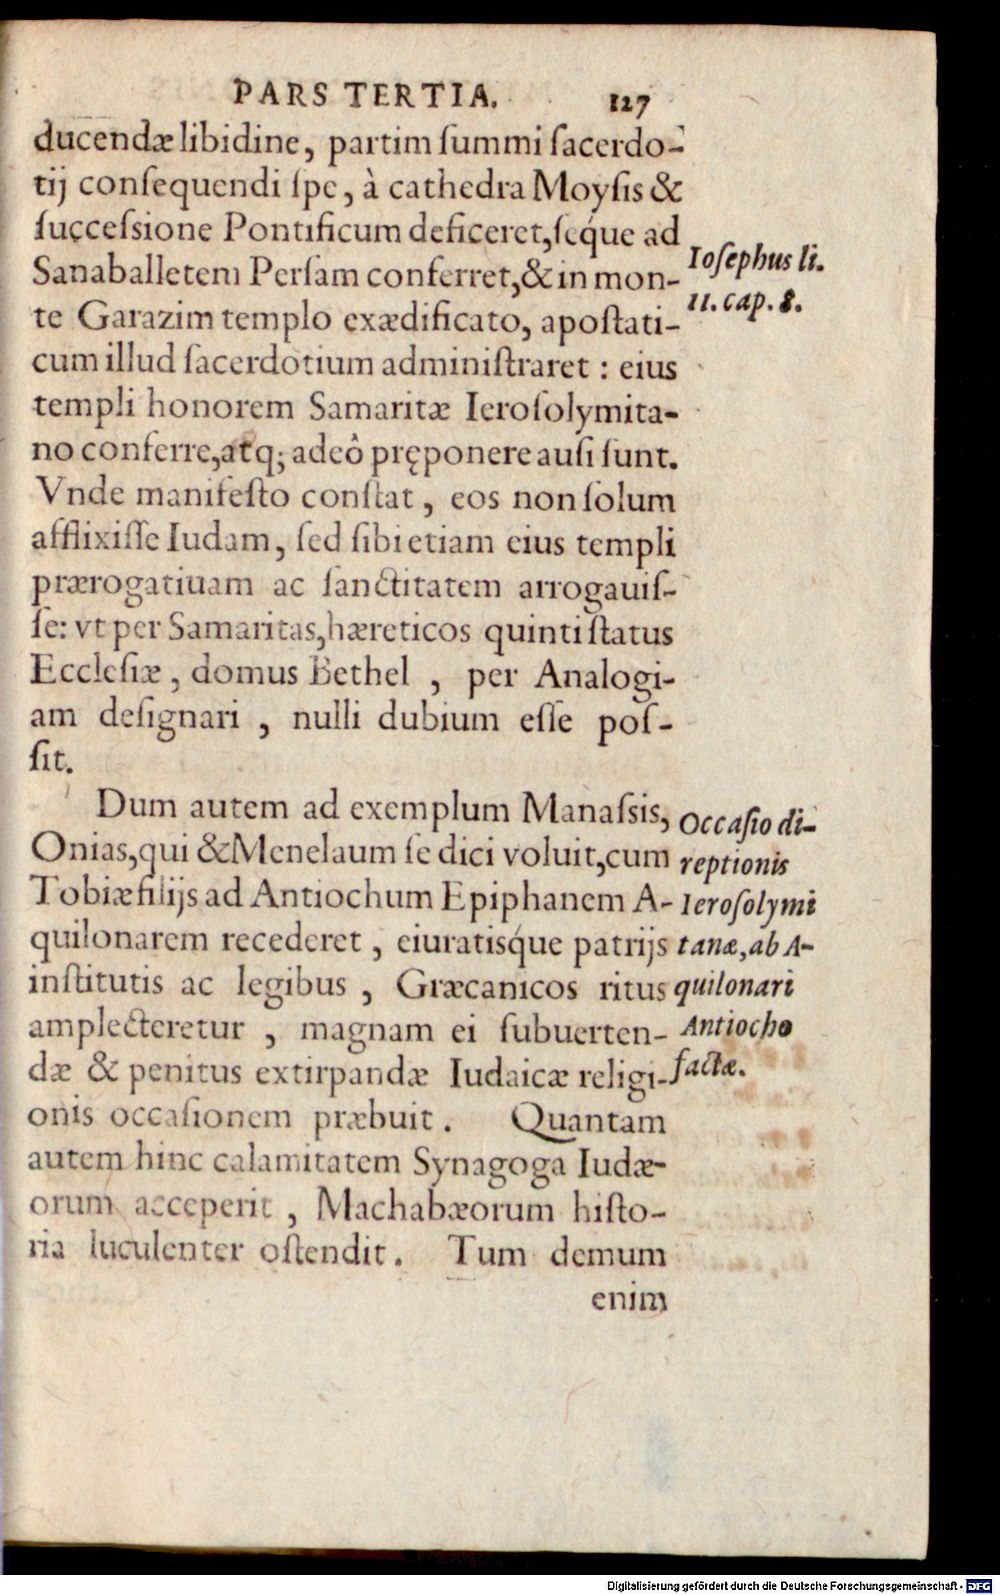 PARS TERTIA. 127
ducendæ libidine, partim ſummi ſacerdo-
tij conſequendi ſpe, à cathedra Moyſis &
ſucceſsione Pontificum deficeret, ſeq́ue ad
Sanaballetem Perſam conferret, & in mon-
te Garazim templo exædificato, apoſtati-
cum illud ſacerdotium adminiſtraret : eius
templi honorem Samaritæ Ieroſolymita-
no conferre, atq; adeò pręponere auſi ſunt.
Vnde manifeſto conſtat, eos non ſolum
afflixiſſe Iudam, ſed ſibi etiam eius templi
prærogatiuam ac ſanctitatem arrogauiſ-
ſe: vt per Samaritas, hæreticos quinti ſtatus
Eccleſiæ, domus Bethel, per Analogi-
am deſignari, nulli dubium eſſe poſ-
ſit.
Ioſephus li.
11. cap. 8.
Dum autem ad exemplum Manaſsis,
Onias, qui & Menelaum ſe dici voluit, cum
Tobiæ filijs ad Antiochum Epiphanem A-
quilonarem recederet, eiuratisq́ue patrijs
inſtitutis ac legibus, Græcanicos ritus
amplecteretur, magnam ei ſubuerten-
dæ & penitus extirpandæ Iudaicæ religi-
onis occaſionem præbuit. Quantam
autem hinc calamitatem Synagoga Iudæ-
orum acceperit, Machabæorum hiſto-
ria luculenter oſtendit. Tum demum
enim
Occaſio di-
reptionis
Ieroſolymi
tanæ, ab A-
quilonari
Antiocho
factæ.
Digitalisierung gefördert durch die Deutsche Forschungsgemeinschaft - DFG